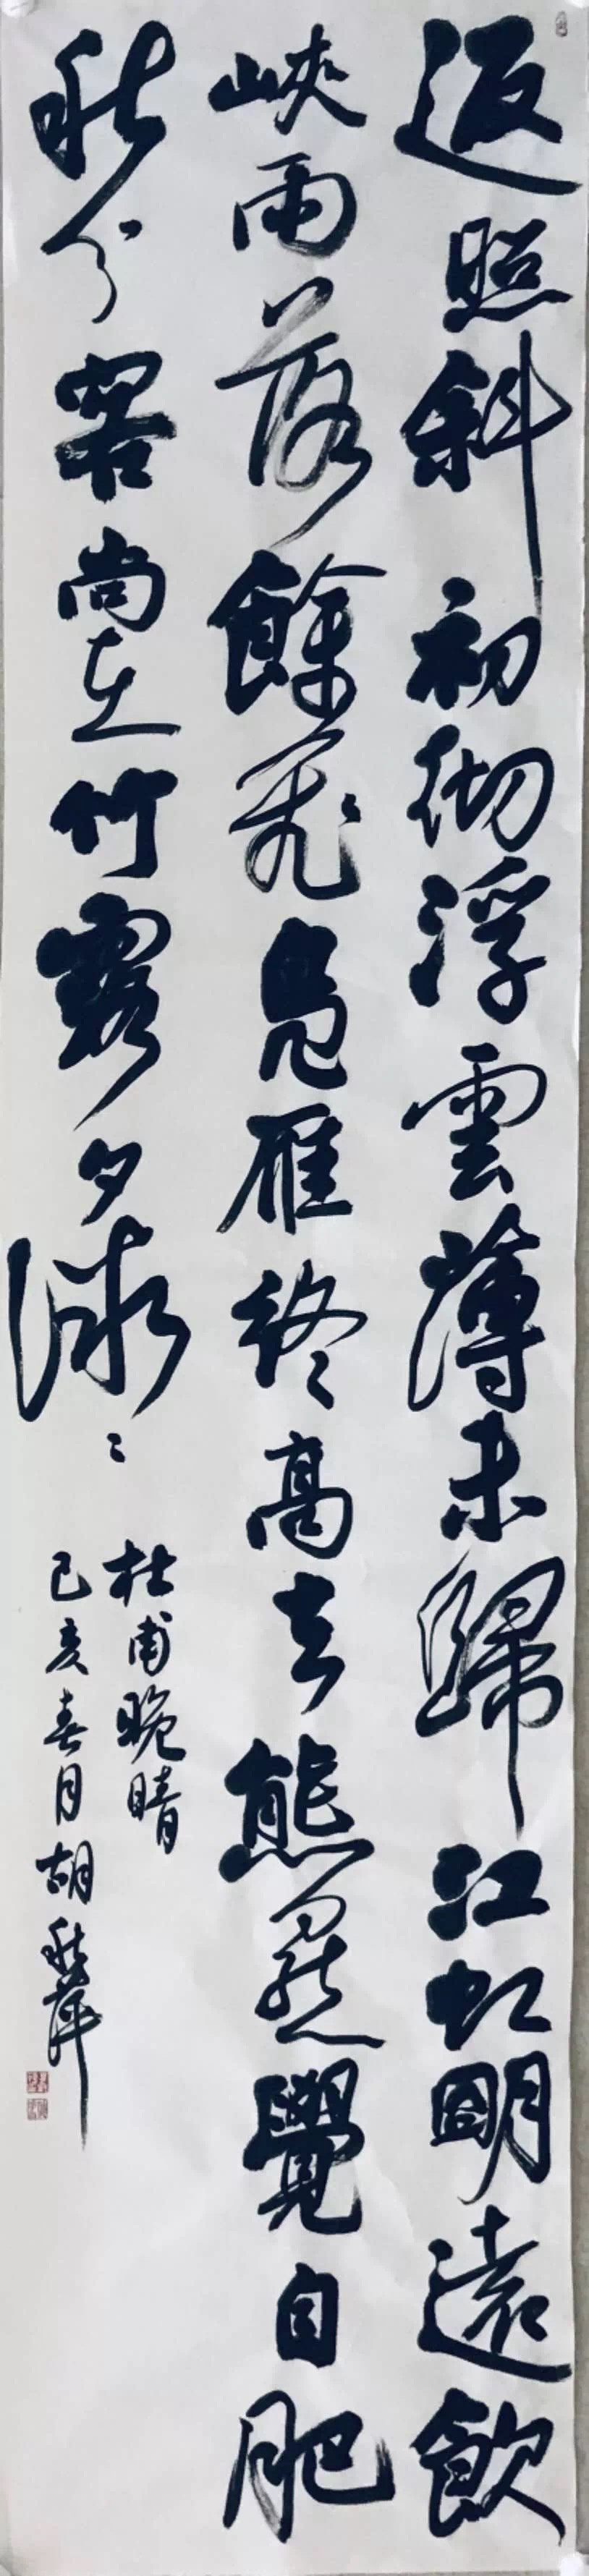 返照斜初彻浮雲薄未歸江虹明遠飲
峽雨落餘飛鳧雁終高去熊羆覺自肥
秋分客尚在竹露夕微々
杜甫晚晴
己亥春月胡秋萍